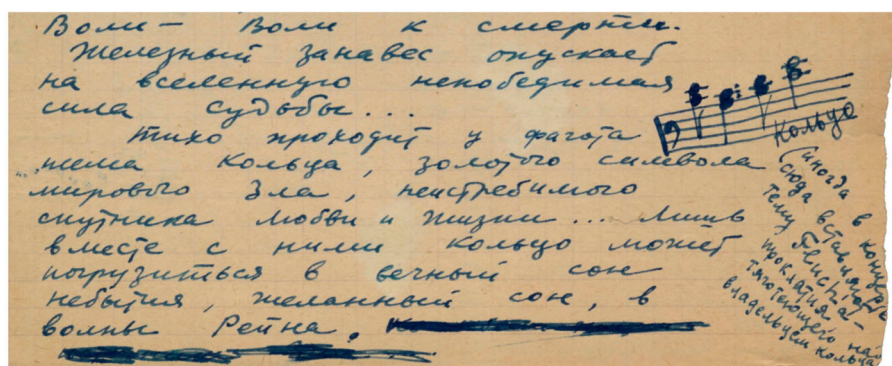 Воли — Воли к смерти.
Железный занавес опускает
на вселенную непобедимая
сила судьбы...
Тихо проходит у фагота
тема Кольца, золотого символа
мирового Зла, неистребимого
спутника любви и жизни... Лишь
вместе с ними Кольцо может
погрузиться в вечный сон
небытия, желанный сон, в
волны Рейна.
Кольцо
(иногда в концерте
сюда вставляют
тему
проклятия
тяготеющего над
владельцем кольца